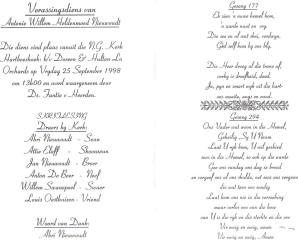 Verassingsdiens van
Antonie Willem Heldenmoed Nieuwoudt
Die diens vind plaas vanuit die N.G. Kerk
Hartbeeshoek: h/v Daveen & Hulton La
Orchards op Vrydag 25 September 1998
om 13h00 en word waargeneem deur
Ds. Fanie v Heerden.
Draers by Kerk:
Abri Nieuwoudt - Seun
Attie Eloff - Skoonseun
Jan Nieuwoudt - Broer
Anton De Beer - Neef
Willem Swanepoel - Swaer
Louis Oosthuizen - Vriend
Woord van Dank:
Abri Nieuwoudt
Gesang 177
Ek sien 'n nuwe hemel kom,
'n aarde nuud en vry.
Die see en al wat dreig, verdwyn,
God self kom by ons bly.
Die Heer droog al die trane af,
verby is droefheid, dood.
Gesang 294
Ons Vader wat woon in die Hemel,
Geheilig Sy U Naam
Laat U ryk kom, U wil geskied
soos in die Hemel, so ook op die aarde
Gee ons vandag ons daaglikse brood
en vergeef ons al ons skulde, net soos ons vergewe
die wat teen ons sondig
Laat kom ons nie in die versoeking
maar verlos ons van die bose
want aan U is die ryk en die sterkte en die eer
Vir ewig en ewig, Amen
Vir ewig en ewig, Amen